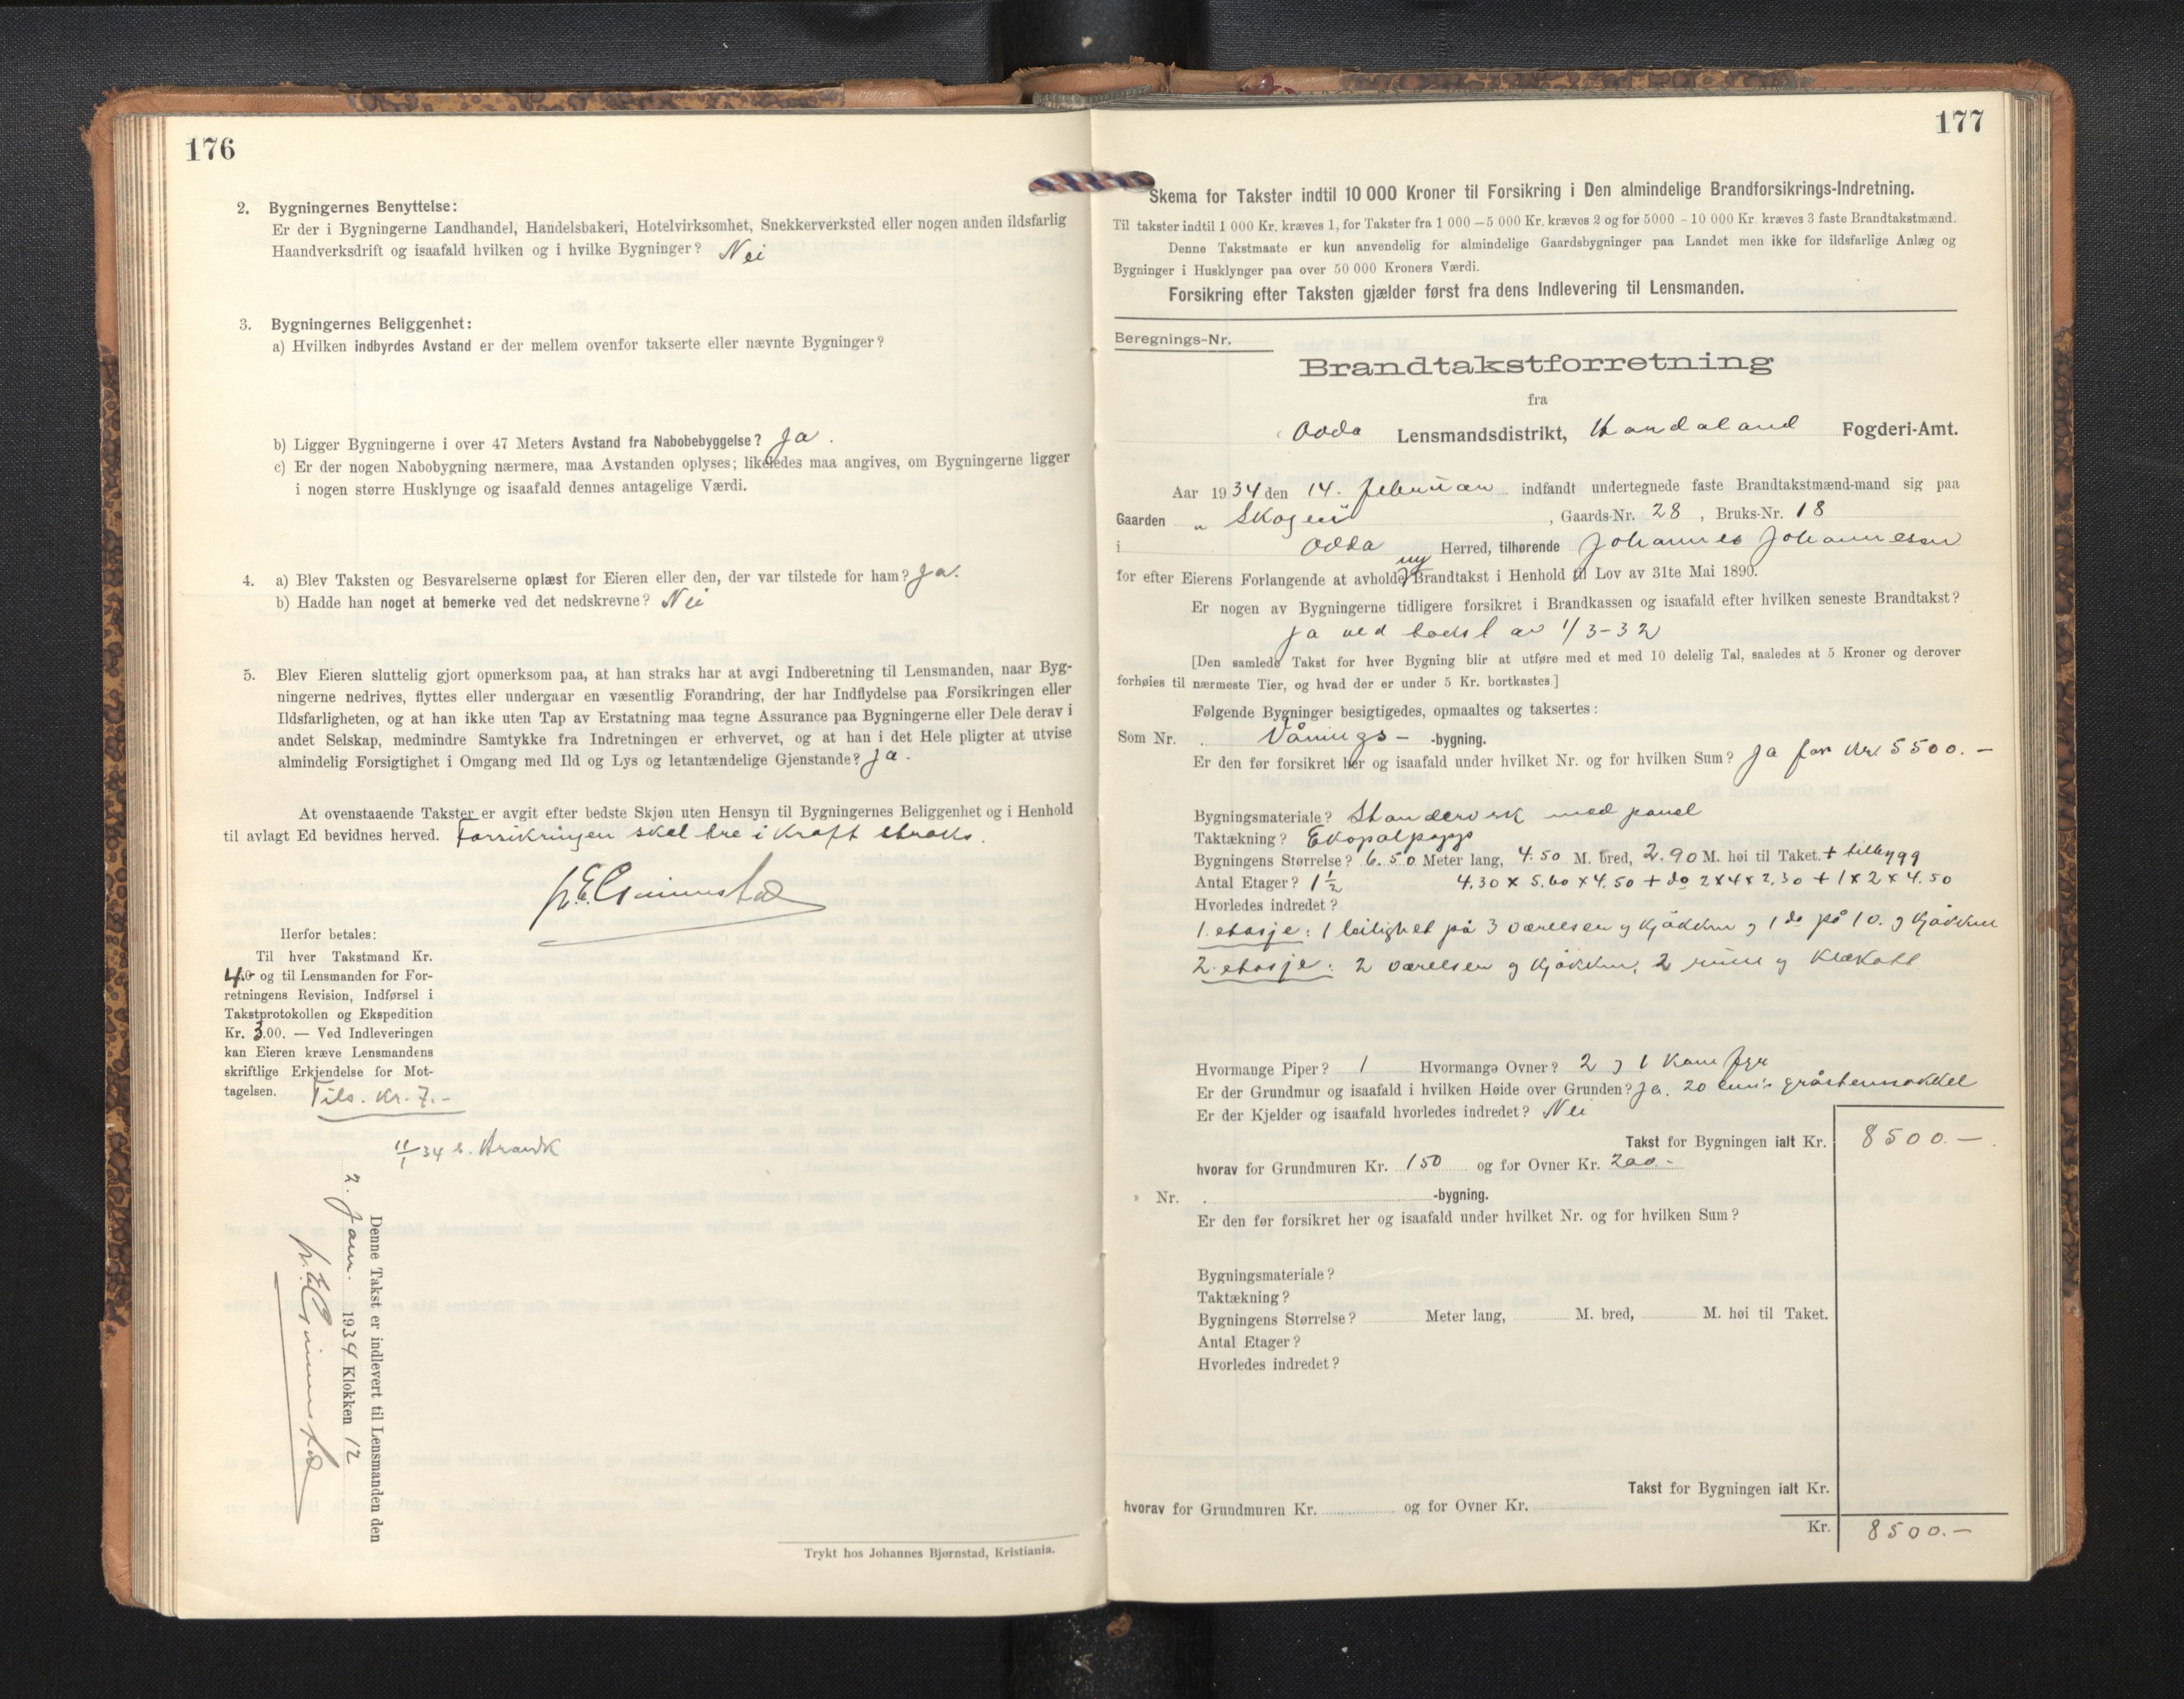 176
2. Bygningernes Benyttelse:
Er der i Bygningerne Landhandel, Handelsbakeri, Hotelvirksomhet, Snekkerverksted eller nogen anden ildsfarlig
Haandverksdrift og isaafald hvilken og i hvilke Bygninger? Nei
3. Bygningernes Beliggenhet:
a) Hvilken indbyrdes Avstand er der mellem ovenfor takserte eller nævnte Bygninger?
b) Ligger Bygningerne i over 47 Meters Avstand fra Nabobebyggelse? Ja.
c) Er der nogen Nabobygning nærmere, maa Avstanden oplyses; likeledes maa angives, om Bygningerne ligger
i nogen større Husklynge og isaafald dennes antagelige Værdi.
4. a) Blev Taksten og Besvarelserne oplæst for Eieren eller den, der var tilstede for ham? Ja.
b) Hadde han noget at bemerke ved det nedskrevne? Nei
5. Blev Eieren sluttelig gjort opmerksom paa, at han straks har at avgi Indberetning til Lensmanden, naar Byg-
ningerne nedrives, flyttes eller undergaar en væsentlig Forandring, der har Indflydelse paa Forsikringen eller
Ildsfarligheten, og at han ikke uten Tap av Erstatning maa tegne Assurance paa Bygningerne eller Dele derav i
andet Selskap, medmindre Samtykke fra Indretningen er erhvervet, og at han i det Hele pligter at utvise
almindelig Forsigtighet i Omgang med Ild og Lys og letantændelige Gjenstande? Ja.
At ovenstaaende Takster er avgit efter bedste Skjøn uten Hensyn til Bygningernes Beliggenhet og i Henhold
til avlagt Ed bevidnes herved. Forsikringen skal tre i kraft straks.
Herfor betales:
Til hver Takstmand Kr.
4.0 og til Lensmanden for For-
retningens Revision, Indførsel i
Takstprotokollen og Ekspedition
Kr. 3.00. — Ved Indleveringen
kan Eieren kræve Lensmandens
skriftlige Erkjendelse for Mot-
tagelsen. Tils. kr. 7.-
11/1 34 s. Brandk
Denne Takst er indlevert til Lensmanden den
2. Jan. 1934 Klokken 12
Trykt hos Johannes Bjørnstad, Kristiania.
177
Skema for Takster indtil 10 000 Kroner til Forsikring i Den almindelige Brandforsikrings-Indretning.
Til takster indtil 1 000 Kr. kræves 1, for Takster fra 1 000 – 5 000 Kr. kræves 2 og for 5000 – 10 000 Kr. kræves 3 faste Brandtakstmænd.
Denne Takstmaate er kun anvendelig for almindelige Gaardsbygninger paa Landet men ikke for ildsfarlige Anlæg og
Bygninger i Husklynger paa over 50 000 Kroners Værdi.
Forsikring efter Taksten gjælder først fra dens Indlevering til Lensmanden.
Beregnings-Nr.
Brandtakstforretning
fra
Odda Lensmandsdistrikt, Hordaland Fogderi-Amt.
Aar 1934 den 14. februar indfandt undertegnede faste Brandtakstmænd-mand sig paa
Gaarden „Skogen“, Gaards-Nr. 28, Bruks-Nr. 18
i Odda Herred, tilhørende Johannes Johannesen
for efter Eierens Forlangende at avholde ny Brandtakst i Henhold til Lov av 31te Mai 1890.
Er nogen av Bygningerne tidligere forsikret i Brandkassen og isaafald efter hvilken seneste Brandtakst?
Ja ved takst av 1/3-32
[Den samlede Takst for hver Bygning blir at utføre med et med 10 delelig Tal, saaledes at 5 Kroner og derover
forhøies til nærmeste Tier, og hvad der er under 5 Kr. bortkastes.]
Følgende Bygninger besigtigedes, opmaaltes og taksertes:
Som Nr. . Vånings- -bygning.
Er den før forsikret her og isaafald under hvilket Nr. og for hvilken Sum? Ja for Kr. 5500.-
Bygningsmateriale? Standerverk med panel
Taktækning? Ekopalpapp
Bygningens Størrelse? 6.50 Meter lang, 4.50 M. bred, 2.90 M. høi til Taket. + tilbygg
Antal Etager? 1 1/2 4.30 x 5.60 x 4.50 + do 2x4x2.30 + 1x2x4.50
Hvorledes indredet?
1. etasje: 1 leilighet på 3 værelser og kjøkken og 1 do på 1 v. og kjøkken
2. etasje: 2 værelser og kjøkken, 2 rum og klækott
Hvormange Piper? 1 Hvormange Ovner? 2 og 1 komfyr
Er der Grundmur og isaafald i hvilken Høide over Grunden? Ja. 20 cm's gråstenssokkel
Er der Kjelder og isaafald hvorledes indredet? Nei
Takst for Bygningen ialt Kr. 8500.-
hvorav for Grundmuren Kr. 150 og for Ovner Kr. 200.-
» Nr. . -bygning.
Er den før forsikret her og isaafald under hvilket Nr. og for hvilken Sum?
Bygningsmateriale?
Taktækning?
Bygningens Størrelse? Meter lang, M. bred, M. høi til Taket.
Antal Etager?
Hvorledes indredet?
Takst for Bygningen ialt Kr.
hvorav for Grundmuren Kr. og for Ovner Kr.
Kr. 8500.-